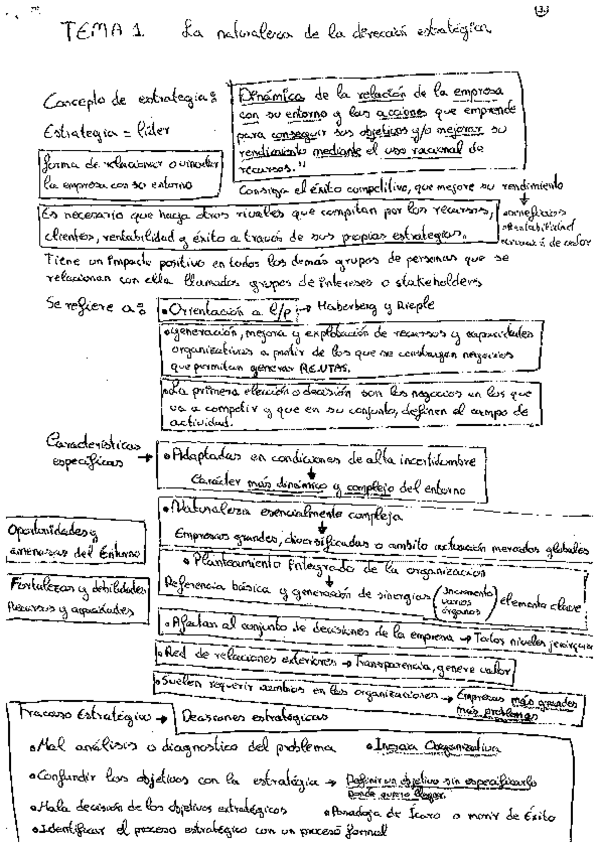 TEMA 1. La naturaleza de la dirección estratégica.
Concepto de estrategia:
Estrategia = líder
forma de relacionar o vincular
la empresa con su entorno
"Dinámica de la relación de la empresa
con su entorno y las acciones que emprende
para conseguir sus objetivos y/o mejorar su
rendimiento mediante el uso racional de
recursos."
Consiga el éxito competitivo, que mejore su rendimiento
• beneficios
• rentabilidad
de valor
Es necesario que haya otros rivales que compitan por los recursos,
clientes, rentabilidad y éxito a través de sus propias estrategias.
Tiene un impacto positivo en todos los demás grupos de personas que se
relacionan con ella llamados grupos de intereses o stakeholders
Se refiere a:
• Orientación a l/p → Haberberg y Rieple
• generación, mejora y explotación de recursos y capacidades
organizativas a partir de los que se construyan negocios
que permitan generar RENTAS.
• La primera elección o decisión son los negocios en los que
va a competir y que en su conjunto, definen el campo de
actividad.
Características
específicas →
• Adaptadas en condiciones de alta incertidumbre
↓
Carácter más dinámico y complejo del entorno
• Naturaleza esencialmente compleja
↓
Empresas grandes, diversificadas o ambito actuación mercados globales
Oportunidades y
amenazas del Entorno
• Planteamiento Integrado de la organización
↓
Referencia básica y generación de sinergias (Incremento varios órganos) elemento clave
Fortalezas y debilidades
Recursos y capacidades
• Afectan al conjunto de decisiones de la empresa → Todos niveles
• Red de relaciones exteriores → Transparencia, genere valor
• Suelen requerir cambios en las organizaciones → Empresas más grandes
más problemas
Fracaso Estratégico → Decisiones estratégicas
• Mal análisis o diagnostico del problema • Inercia Organizativa
• Confundir los objetivos con la estratégia → Definir un objetivo sin especificarlo
Donde quiero llegar.
• Mala decisión de los objetivos estratégicos • Paradoja de Ícaro o morir de Éxito
• Identificar el proceso estratégico con un proceso formal